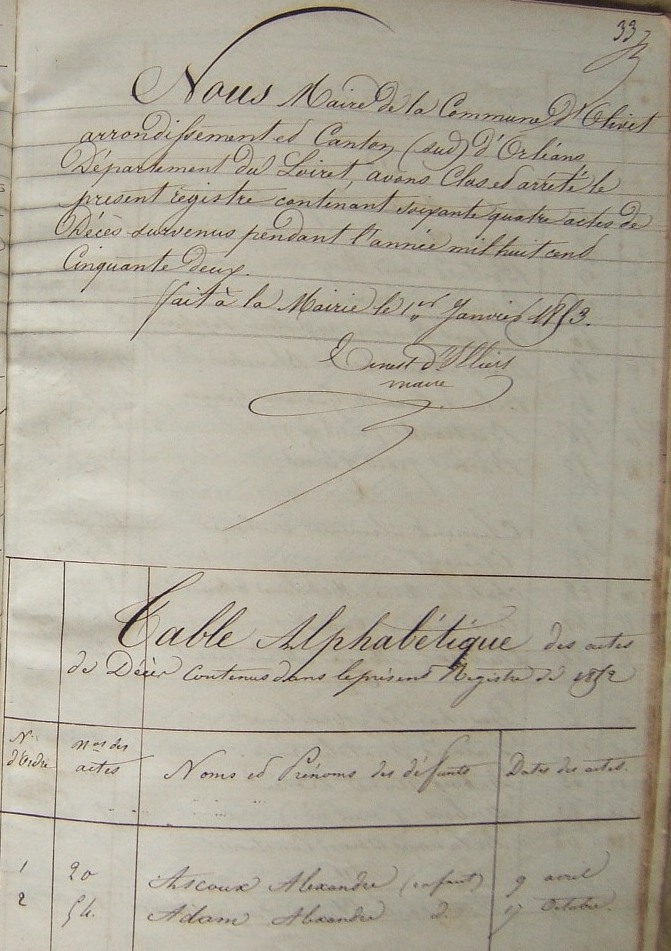 33
Nous Maire de la Commune d'Olivet
arrondissement et Canton (sud) d'Orléans,
Département du Loiret, avons Clos et arrêté le
présent registre contenant soixante quatre actes de
Décès survenus pendant l'année mil huit cent
Cinquante deux.
fait à la Mairie le 1er Janvier 1853.
Ernest d'Illiers
maire
Table Alphabétique des actes
de Décès Contenus dans le présent Registre de 1852
Nos d'Ordre
nos des actes
Noms et Prénoms des défunts
Dates des actes.
1 20 Ascoux Alexandre (enfant) 9 avril
2 54. Adam Alexandre d. 17 Octobre.